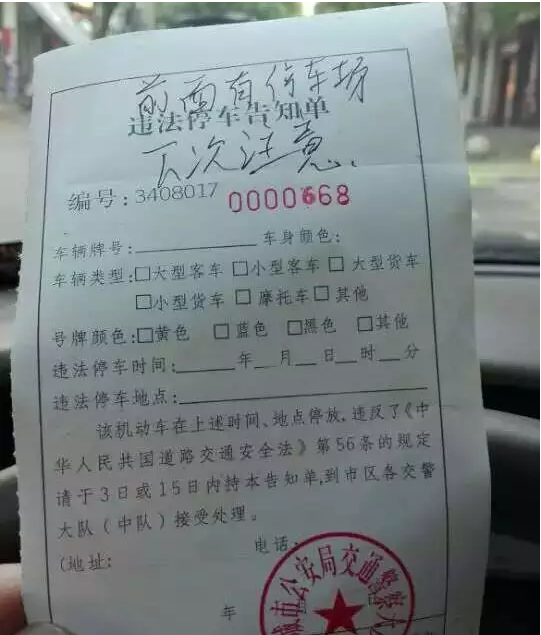 前面有停车场
违法停车告知单
下次注意、
编号：3408017 0000668
车辆牌号：________ 车身颜色：
车辆类型：□大型客车 □小型客车 □ 大型货车
□小型货车 □ 摩托车□ 其他
号牌颜色：□黄色 □ 蓝色 □黑色 □其他
违法停车时间：____年__月__日__时__分
违法停车地点：________
该机动车在上述时间、地点停放，违反了《中
华人民共国道路交通安全法》第56条的规定
请于3日或15日内持本告知单，到市区各交警
大队（中队）接受处理。
（地址： 电话：
年
市公安局交通警察大